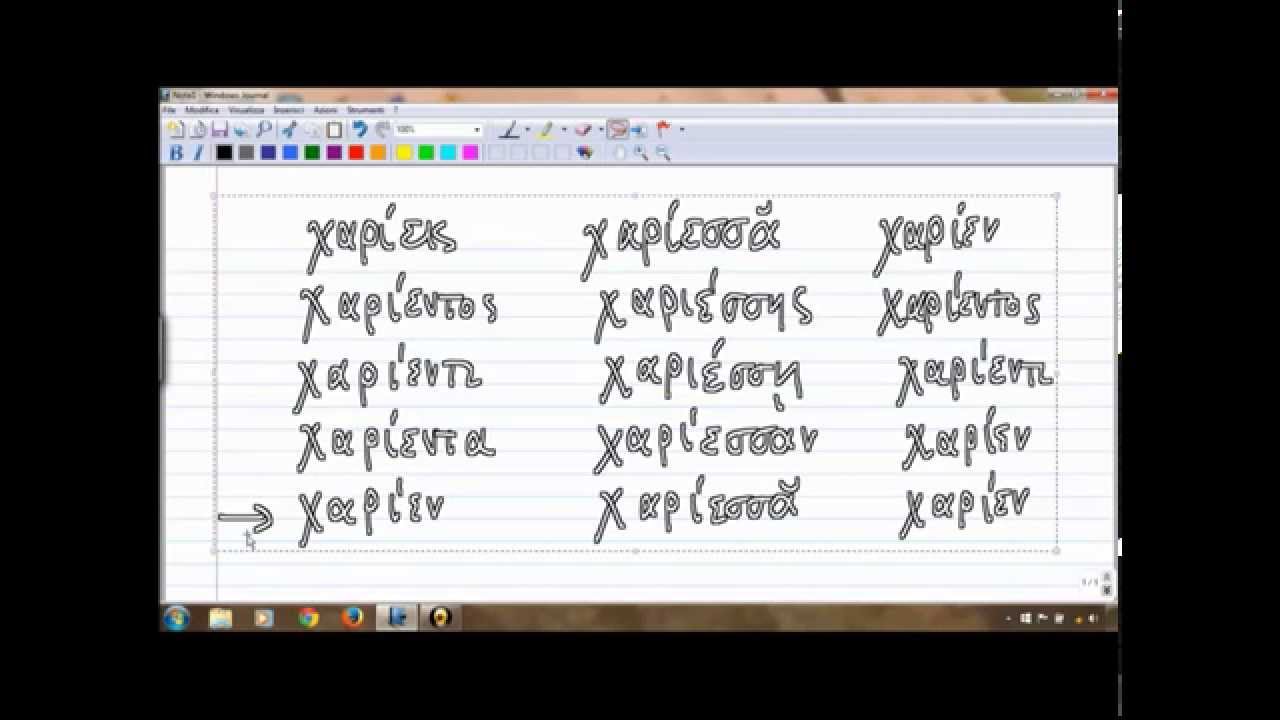 Note1 - Windows Journal
File Modifica Visualizza Inserisci Azioni Strumenti ?
100%
B I
χαρίεις χαρίεσσᾰ χαρίεν
χαρίεντος χαριέσσης χαρίεντος
χαρίεντι χαριέσσῃ χαρίεντι
χαρίεντα χαρίεσσαν χαρίεν
→ χαρίεν χαρίεσσᾰ χαρίεν
1/1